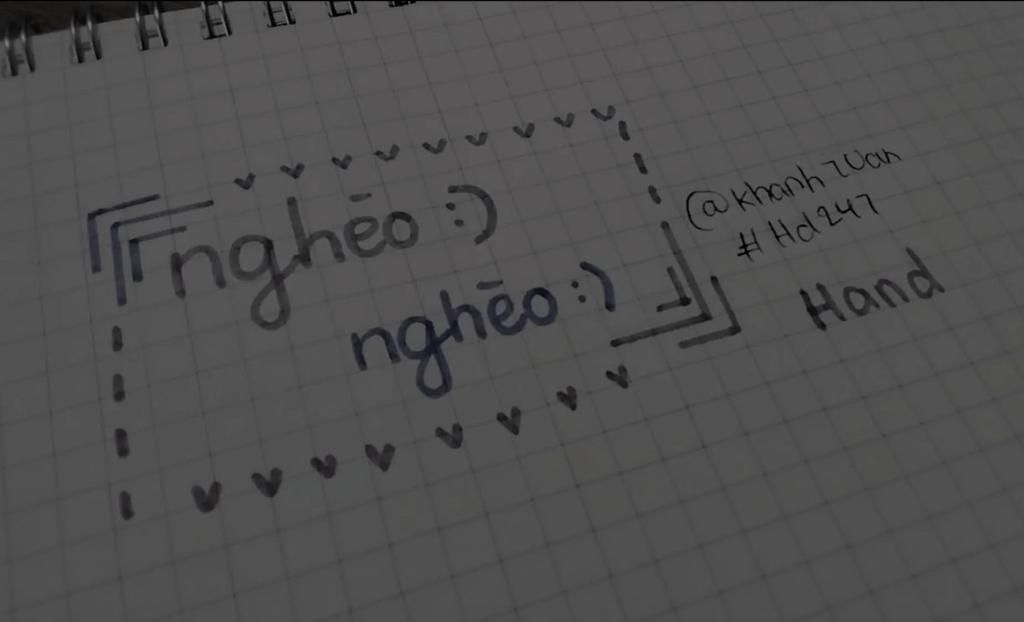 nghēo :)
nghēo :)
@khanh zuan
#Hd247
Hand